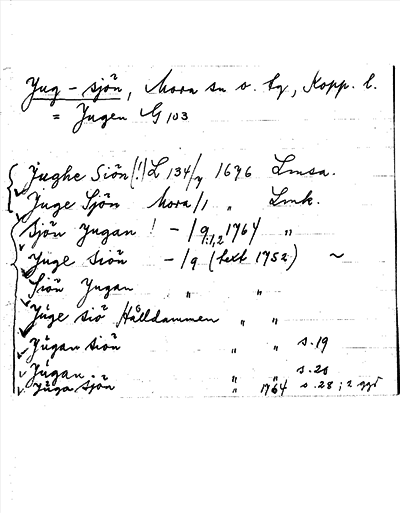 Jug-sjön, Mora sn o. tg, Kopp. l.
= Jugen G 103
Jughe Siön (!) L 134/7 1676 Lmsa.
Juge Sjön Mora/1 " Lmk.
Sjön Jugan ! - /9:1,2 1764 "
Juge Siön - /9 (text 1752) ~
Siön Jugan " "
Juge siö Hålldammen " "
Jugan siön " " s. 19
Jugan " " s. 20
Juga Sjön " 1764 s. 28; 2 ggr